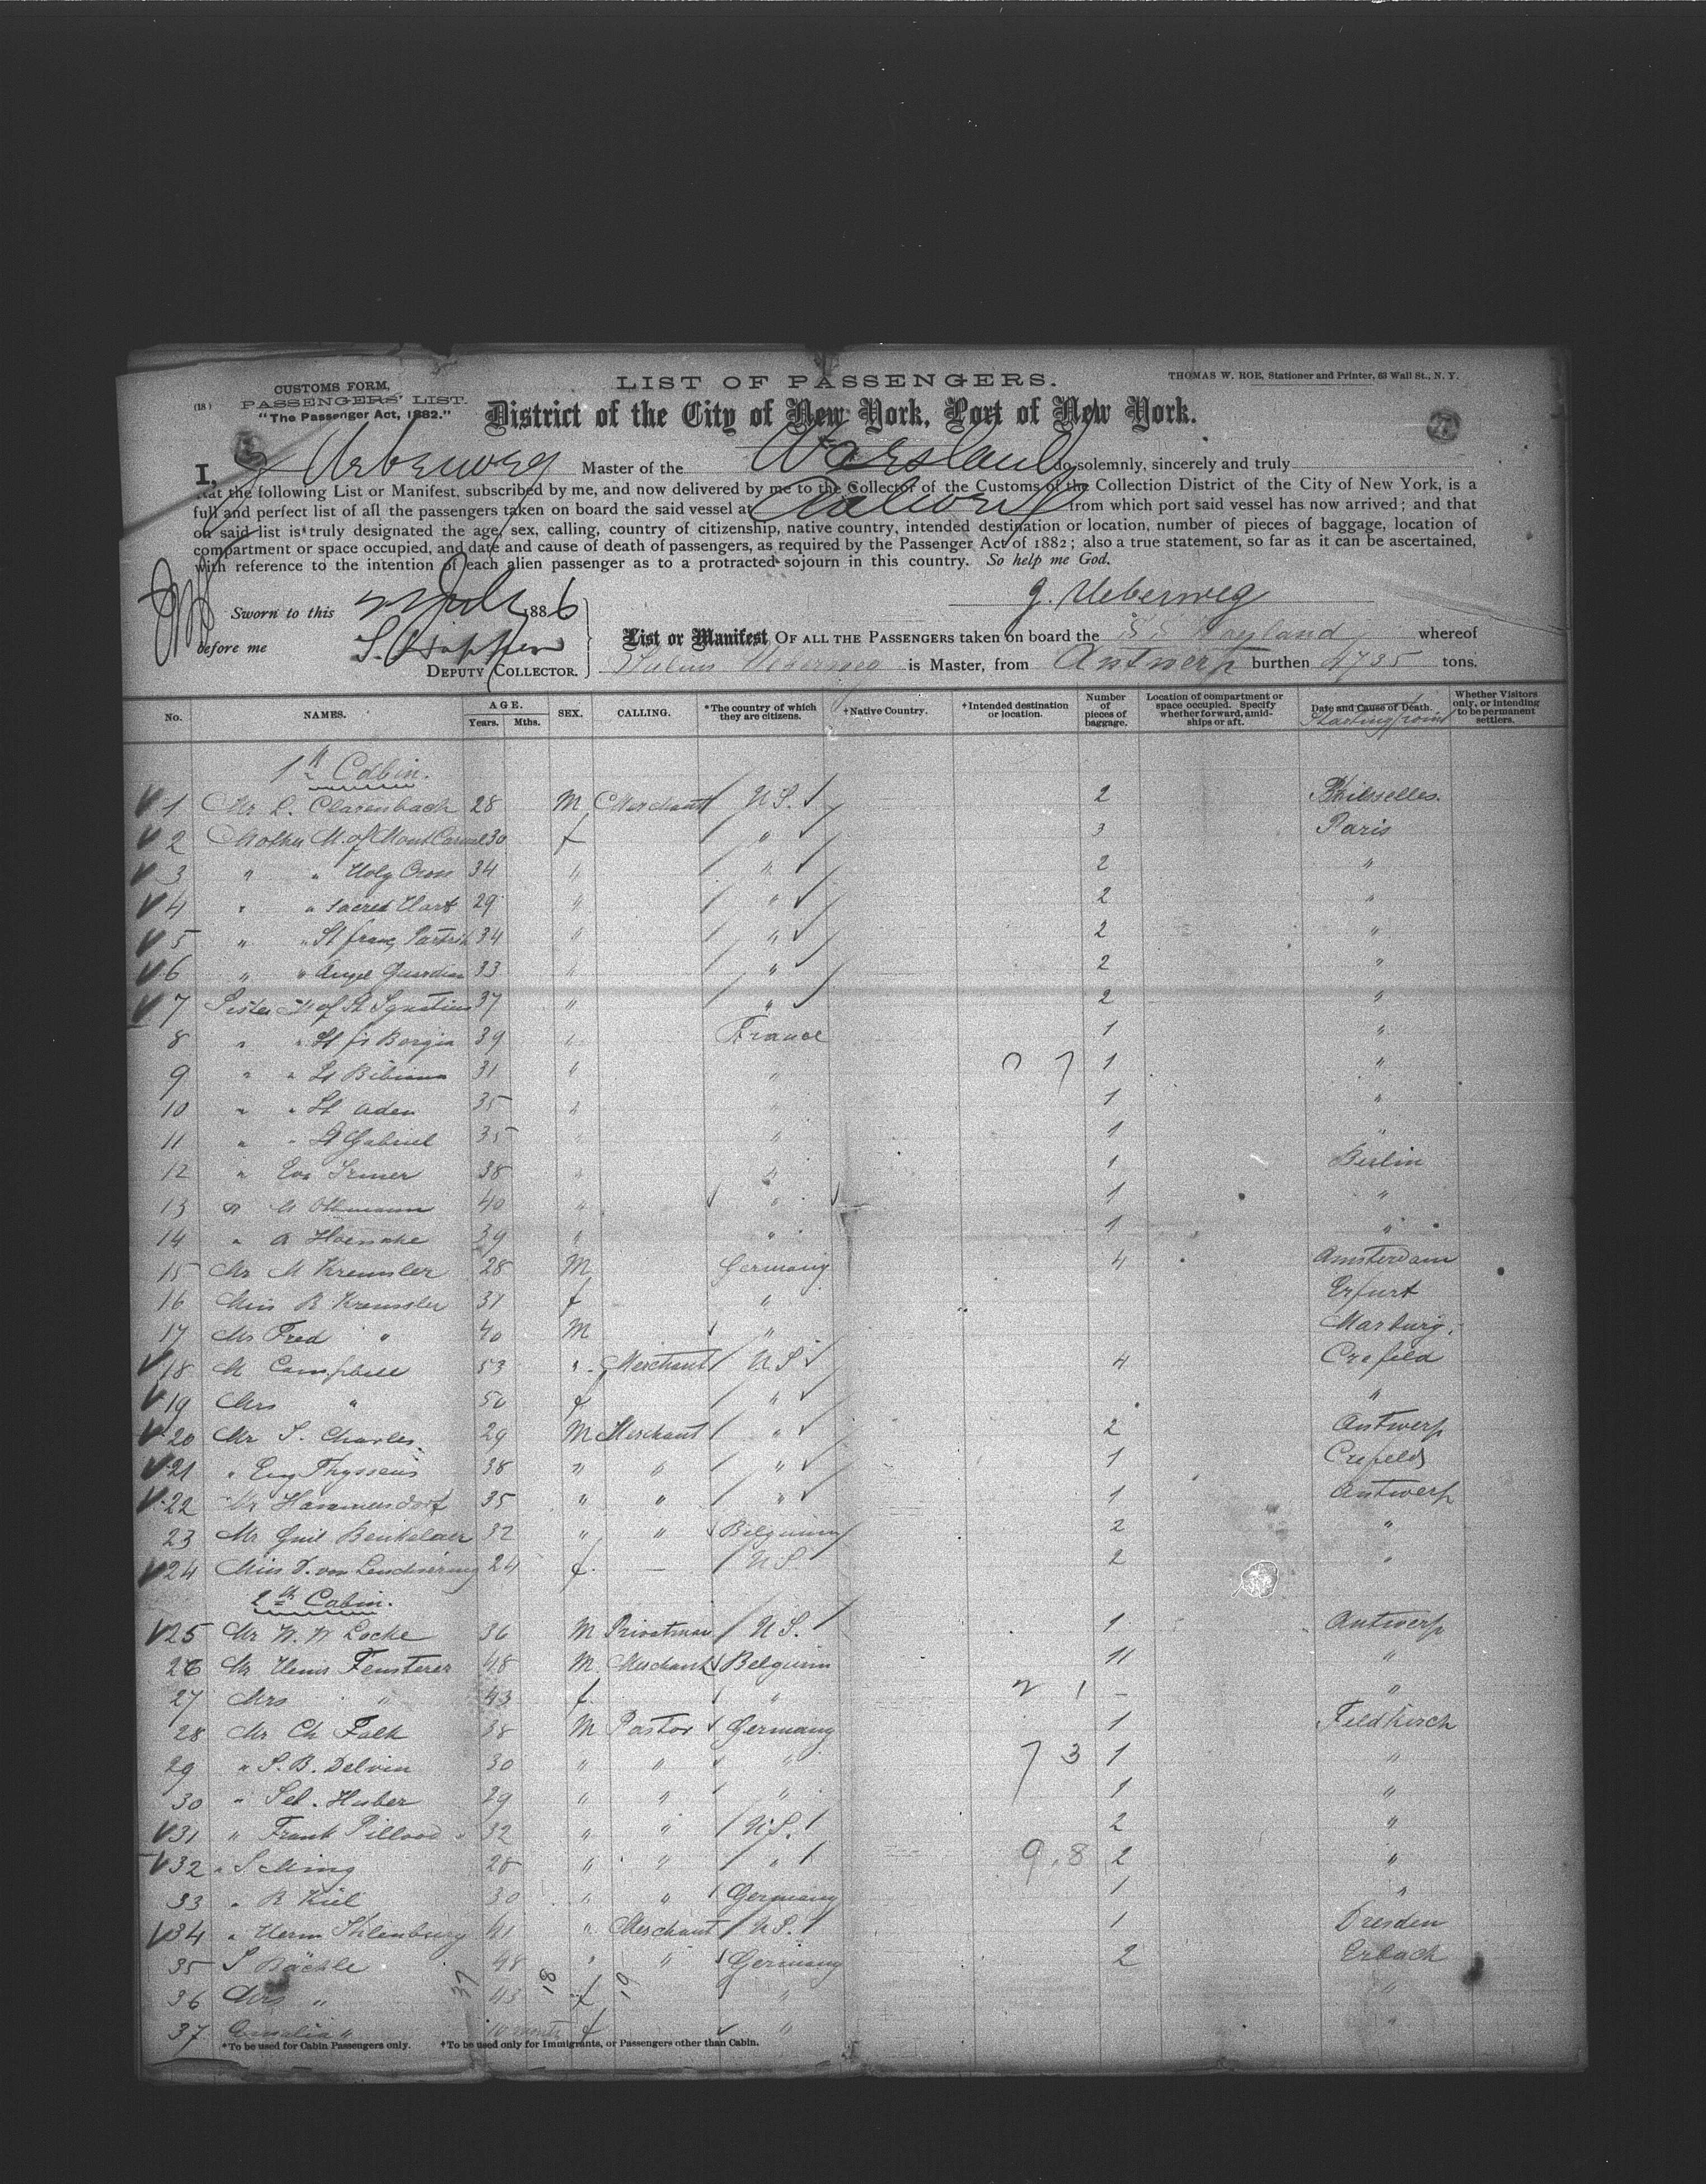 CUSTOMS FORM,
(18)
PASSENGERS' LIST.
"The Passenger Act, 1882."
LIST OF PASSENGERS.
THOMAS W. ROE, Stationer and Printer, 63 Wall St., N. Y.
District of the City of New York, Port of New York.
77
I, J Ueberweg Master of the Waesland do solemnly, sincerely and truly
that the following List or Manifest, subscribed by me, and now delivered by me to the Collector of the Customs of the Collection District of the City of New York, is a
full and perfect list of all the passengers taken on board the said vessel at Antwerp from which port said vessel has now arrived; and that
on said list is truly designated the age, sex, calling, country of citizenship, native country, intended destination or location, number of pieces of baggage, location of
compartment or space occupied, and date and cause of death of passengers, as required by the Passenger Act of 1882; also a true statement, so far as it can be ascertained,
with reference to the intention of each alien passenger as to a protracted sojourn in this country. So help me God.
J. Ueberweg
Sworn to this 1886
before me
DEPUTY COLLECTOR.
List or Manifest OF ALL THE PASSENGERS taken on board the S S Waesland whereof
Julius Ueberweg is Master, from Antwerp burthen 4735 tons.
No. NAMES. AGE. Years. Mths. SEX. CALLING. *The country of which they are citizens. †Native Country. †Intended destination or location. Number of pieces of baggage. Location of compartment or space occupied. Specify whether forward, amidships or aft. Date and Cause of Death. Starting point Whether Visitors only, or intending to be permanent settlers.
1st Cabin.
1 Mr L. Clarenbach 28 M Merchant U S. 2
2 Mother M. of Mount Carmel 30 f " 3 Paris
3 " " Holy Cross 34 " " 2 "
4 " " Sacred Hart 29 " " 2 "
5 " " St franz 34 " " 2 "
6 " " Angel Guardian 33 " " 2 "
7 Sister M of St Ignatius 37 " " 2 "
8 " " St fr Borgia 39 " France 1 "
9 " " St Bibiana 31 " " 0 7 1 "
10 " " St Aden 35 " " 1 "
11 " " St Gabriel 35 " " 1 "
12 " Eva Irmer 38 " " 1 Berlin
13 " 40 " " 1 "
14 " A 39 " " 1 "
15 Mr M Kreussler 28 M Germany 4 Amsterdam
16 Miss B Kreussler 31 f " Erfurt
17 Mr Fred " 40 M " Marburg.
18 M Campbell 53 " Merchant U S 4 Crefeld
19 Mrs " 50 f " "
20 Mr S. Charles 29 M Merchant " 2 Antwerp
21 " Eug Thyssens 38 " " " 1 Crefeld
22 Mr Hammersdorf 35 " " " 1 Antwerp
23 Mr Guil Beukelaer 32 " " Belguium 2 "
24 Miss D. von 24 f. — U S. 2 "
2th Cabin.
25 Mr W. W Locke 36 M Privatman U S. 1 Antwerp
26 Mr Henri Fensterer 48 M Merchant Belguim 11 "
27 Mrs " 43 f " 2 1 – "
28 Mr Ch Falk 38 M Pastor Germany 1 Feldkirch
29 " S. B. Delvin 30 " " " 7 3 1 "
30 " Seb. Huber 29 " " " 1 "
31 " Frank Pilloud 32 " " U S. 2 "
32 " S Ming 28 " " " 9.8 2 "
33 " R Kiel 30 " " Germany 1 "
34 " Herm Ihlenburg 41 " Merchant U S. 1 Dresden
35 S Bächle 48 " " Germany 2 Erbach
36 Mrs " 43 f " "
37 Emilia " 10 months f " "
37 18 19
*To be used for Cabin Passengers only. †To be used only for Immigrants, or Passengers other than Cabin.